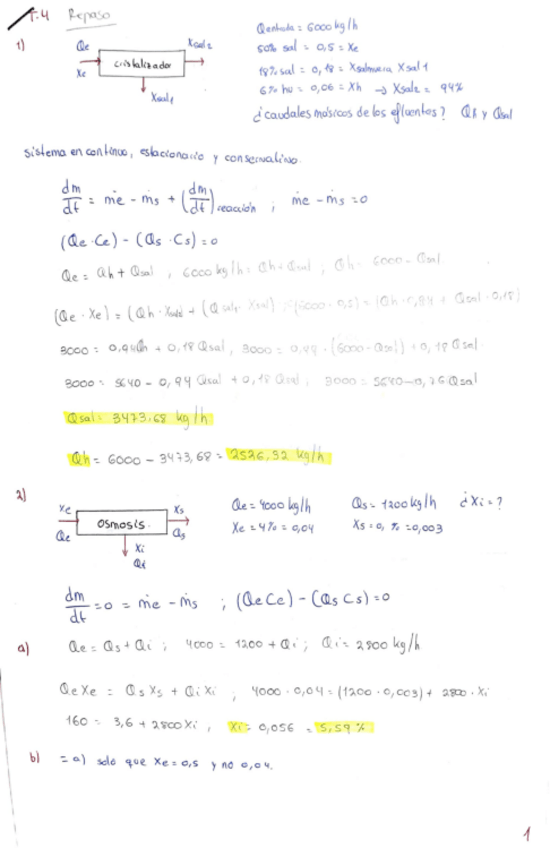 T.4 Repaso
1)
Qe
Xe
cristalizador
Xsal2
Xsal1
Qentrada = 6000 kg/h
50% sal = 0,5 = Xe
18% sal = 0,18 = Xsalmuera Xsal1
6% hu = 0,06 = Xh → Xsal2 = 94%
¿caudales másicos de los efluentes? Qh y Qsal
Sistema en continuo, estacionario y conservativo.
dm/dt = ṁe - ṁs + (dm/dt)reacción ; ṁe - ṁs = 0
(Qe·Ce) - (Qs·Cs) = 0
Qe = Qh + Qsal , 6000 kg/h = Qh + Qsal ; Qh = 6000 - Qsal
(Qe·Xe) = (Qh·Xsal2) + (Qsal·Xsal) ; (6000·0,5) = (Qh·0,94 + Qsal·0,18)
3000 = 0,94Qh + 0,18Qsal , 3000 = 0,94·(6000-Qsal) + 0,18Qsal
3000 = 5640 - 0,94 Qsal + 0,18 Qsal , 3000 = 5640-0,76Qsal
Qsal = 3473,68 kg/h
Qh = 6000 - 3473,68 = 2526,32 kg/h
2)
Xe
Qe
OSMOSIS
Xs
Qs
Xi
Qi
Qe = 4000 kg/h Qs = 1200 kg/h ¿Xi = ?
Xe = 4% = 0,04 Xs = 0, % = 0,003
dm/dt = 0 = ṁe - ṁs ; (QeCe) - (QsCs) = 0
a) Qe = Qs + Qi ; 4000 = 1200 + Qi ; Qi = 2800 kg/h
QeXe = QsXs + QiXi ; 4000·0,04 = (1200·0,003) + 2800·Xi
160 = 3,6 + 2800Xi , Xi = 0,056 = 5,59%
b) = a) solo que Xe = 0,5 y no 0,04.
1